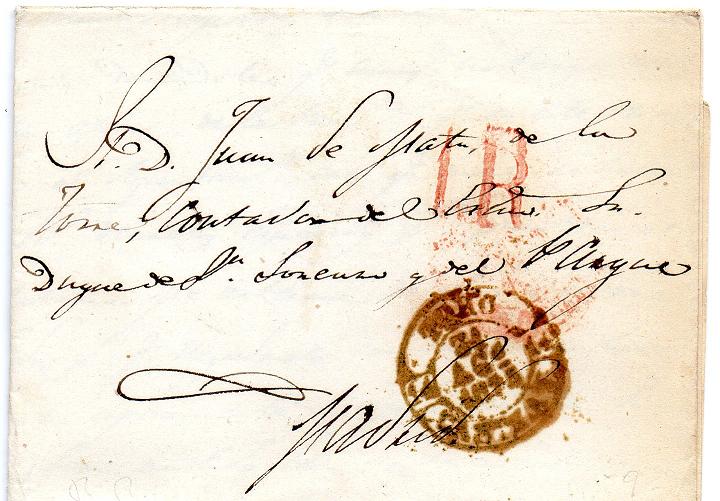 Sr. D. Juan de Mata, de la
Torre, Contador del Exmo. Sr.
Duque de Sn. Lorenzo y del Parque
Madrid.
1R
AGO